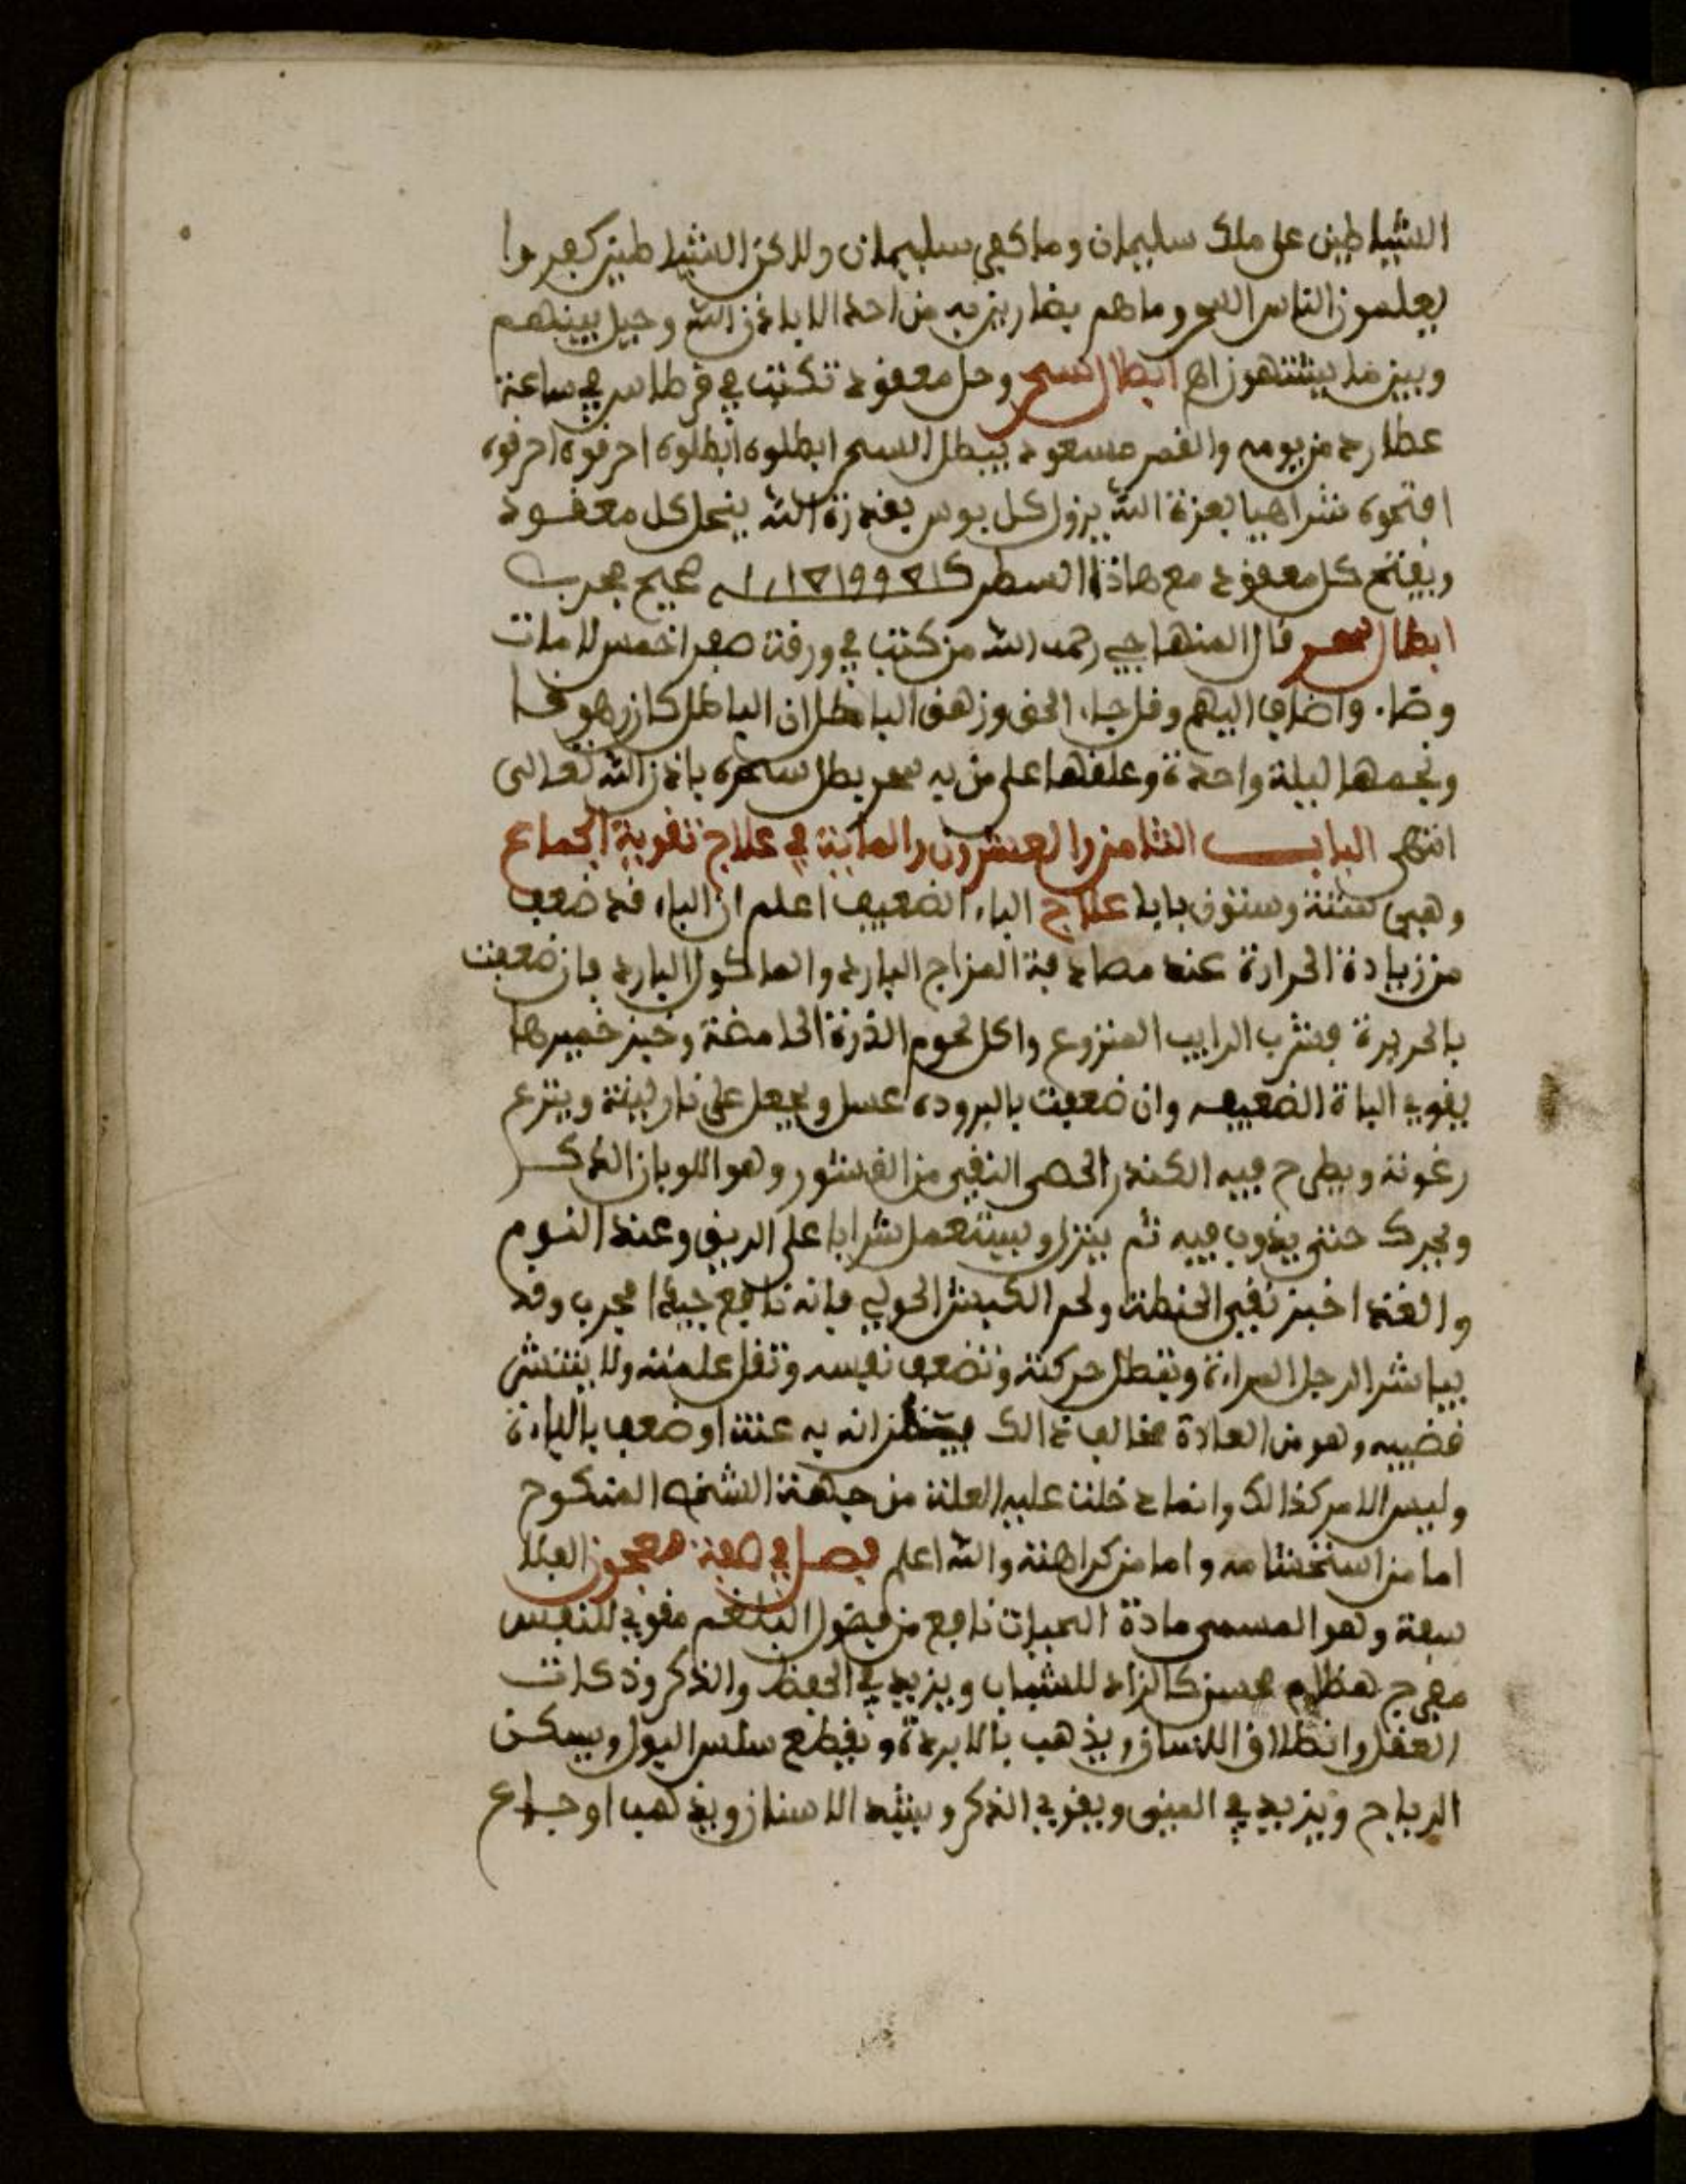 الشياطين على ملك سليمان وما كفر سليمان ولاكن الشياطين كفروا
يعلمون الناس السحر وما هم بضارين به من احد الا باذن الله وحيل بينهم
وبين ما يشتهون اهـ ابطال السحر وحل معقود تكتب في قرطاس في ساعة
عطارد من يومه والقمر مسعود يبطل السحر ابطلوه ابطلوه احرقوه احرقوه
افتحوه شراهيا بعزة الله يزول كل بوس بقدرة الله ينحل كل معقود
ويفتح كل معقود مع هاذا السطر صحيح مجرب
ابطال سحر قال المنهاجي رحمه الله من كتب في ورقة صفرا خمس لامات
وصا. واضاف اليهم وقل جاء الحق وزهق الباطل ان الباطل كان زهوقا
ونجمها ليلة واحدة وعلقها على من به سحر بطل سحره باذن الله تعالى
انتهى الباب الثامن والعشرون والماية في علاج تقوية الجماع
وهي ستة وستون بابا علاج الباء الضعيف اعلم ان الباه قد ضعف
من زيادة الحرارة عند مصادفة المزاج البارد والماكول البارد فان ضعفت
بالحريرة فشرب الرايب المنزوع واكل لحوم الذرة الحامضة وخبز خميرها
يقوي الباة الضعيف وان ضعفت بالبرودة عسل ويجعل على نار لينة وينزع
رغوته ويطرح فيه الكندر الحصى النقي من القشور وهو اللوبان الذكر
ويحرك حتى يذوب فيه ثم ينزل ويستعمل شرابا على الريق وعند النوم
والغذا خبز نقي الحنطة ولحم الكبش الحولي فانه نافع جيدا مجرب وقد
يباشر الرجل المراة وتبطل حركته وتضعف نفسه وتقل علمته ولا ينتشر
قضيبه وهو من العادة مخالف ذالك فيظن انه به عنة او ضعف بالباءة
وليس الامر كذالك وانما دخلت عليه العلة من جهة الشخص المنكوح
اما من استحشامه واما من كراهته والله اعلم فصل في صفة معجون الفلا
سفة وهو المسمى مادة الحيات نافع من فضول البلغم مقوي للنفس
مفرح هظام محسن كالزاد للشباب ويزيد في الحفظ والذكر وذكات
العقل وانطلاق اللسان ويذهب بالابردة ويقطع سلس البول ويسكن
الرياح ويزيد في المني ويقوي الذكر ويشد الاسنان ويذهب اوجاع